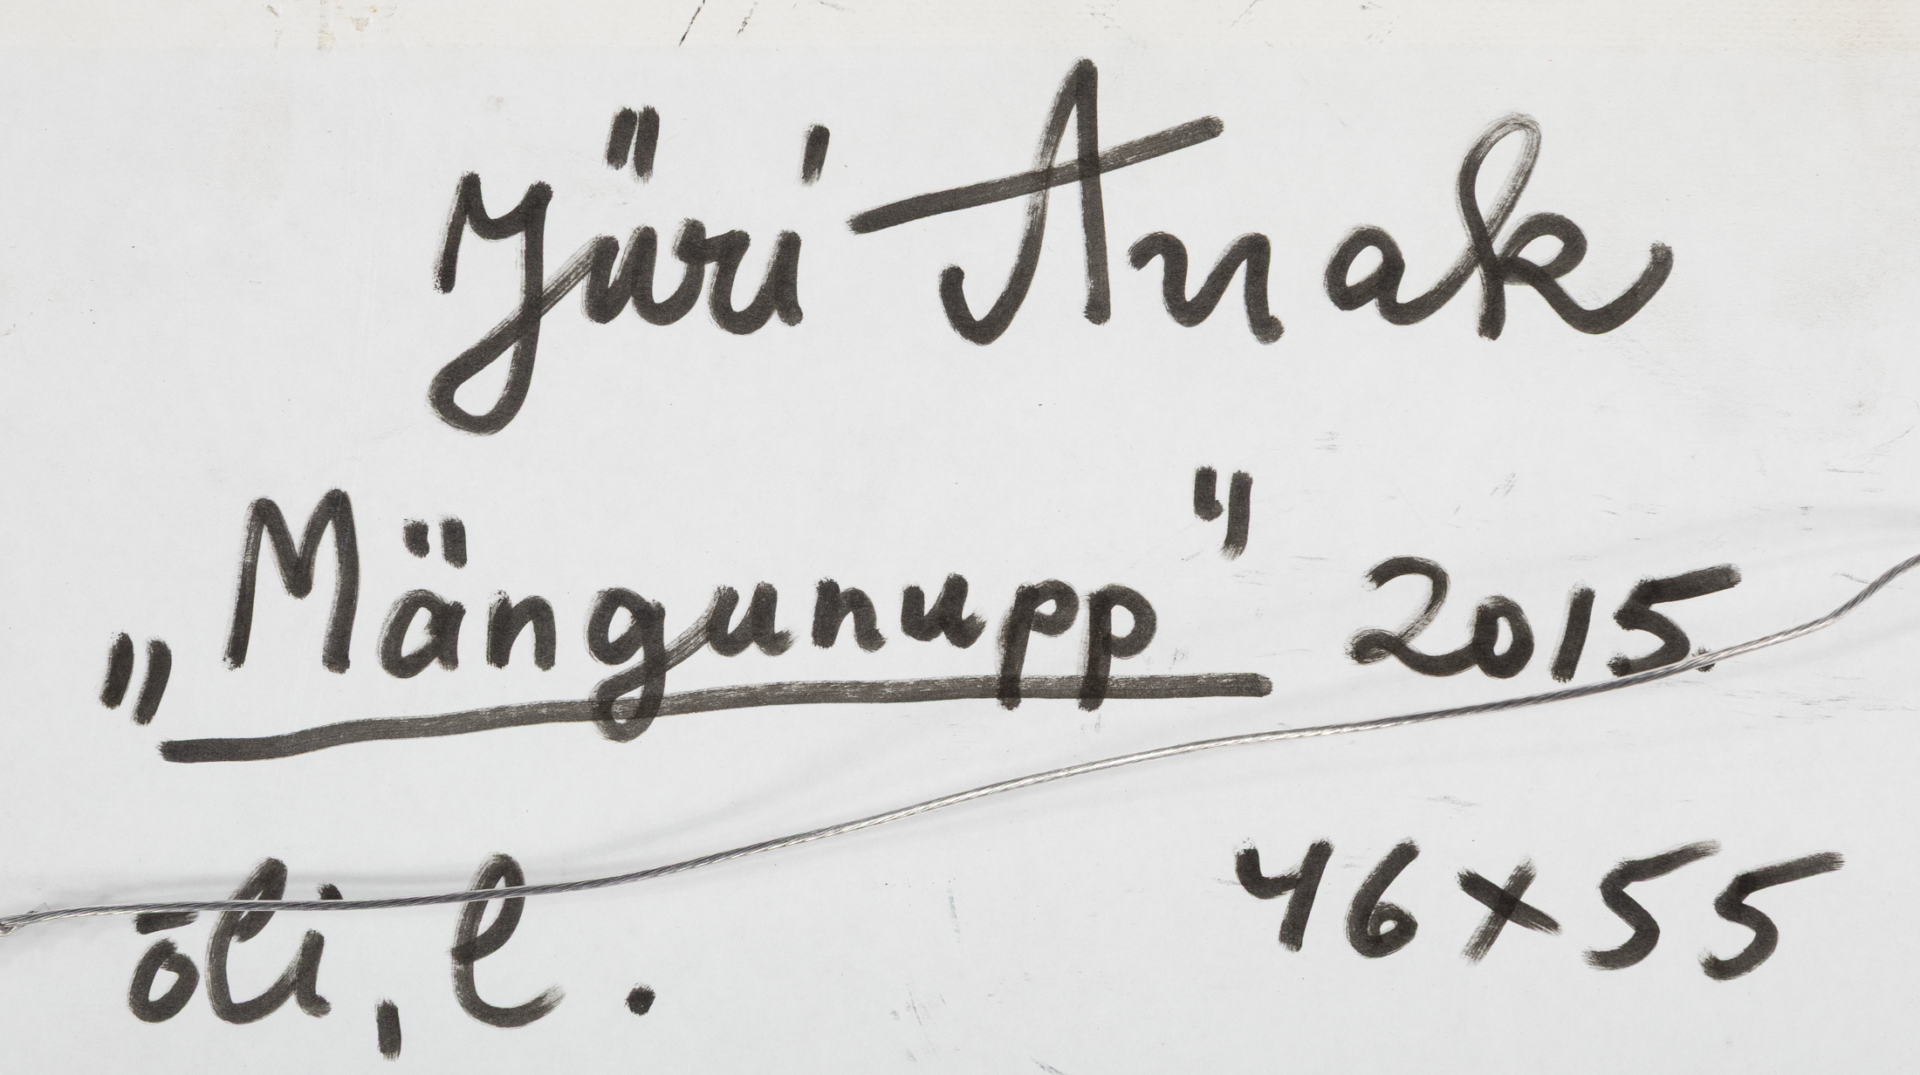 Jüri Arrak
„Mängunupp" 2015.
õli, l. 46x55